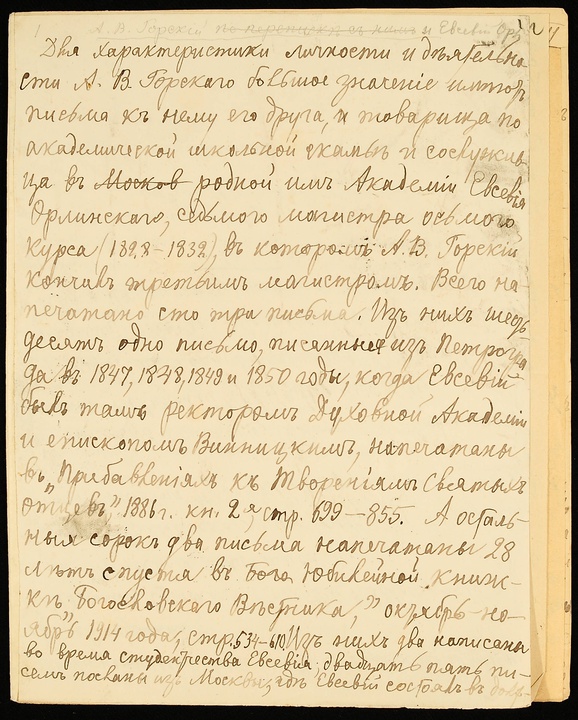 А. В. Горскій по перепискѣ съ нимъ и Евсевій
Для характеристики личности и дѣятельно
сти А. В. Горскаго большое значеніе имѣютъ
письма къ нему его друга, и товарища по
академической школьной скамьѣ и сослужив
ца въ Москов родной имъ Академіи Евсевія
Орлинскаго, седьмого магистра осьмого
курса (1828–1832), въ которомъ А. В. Горскій
кончилъ третьимъ магистромъ. Всего на
печатано сто три письма. Изъ нихъ шесть
десятъ одно письмо, писанныя изъ Петрогра
да въ 1847, 1848, 1849 и 1850 годы, когда Евсевій
былъ тамъ ректоромъ Духовной Академіи
и епископомъ Винницкимъ, напечатаны
въ „Прибавленіяхъ къ Твореніямъ Святыхъ
Отцевъ" 1886 г. кн. 2я, стр. 699—855. А осталь-
ныя сорокъ два письма напечатаны 28
лѣтъ спустя въ Бого Юбилейной книж-
кѣ „Богословскаго Вѣстника," октябрь-но-
ябрь 1914 года, стр. 534–610. Изъ нихъ два написаны
во время студенчества Евсевія, двадцать пять пи-
семъ посланы изъ Москвы, гдѣ Евсевій состоялъ въ